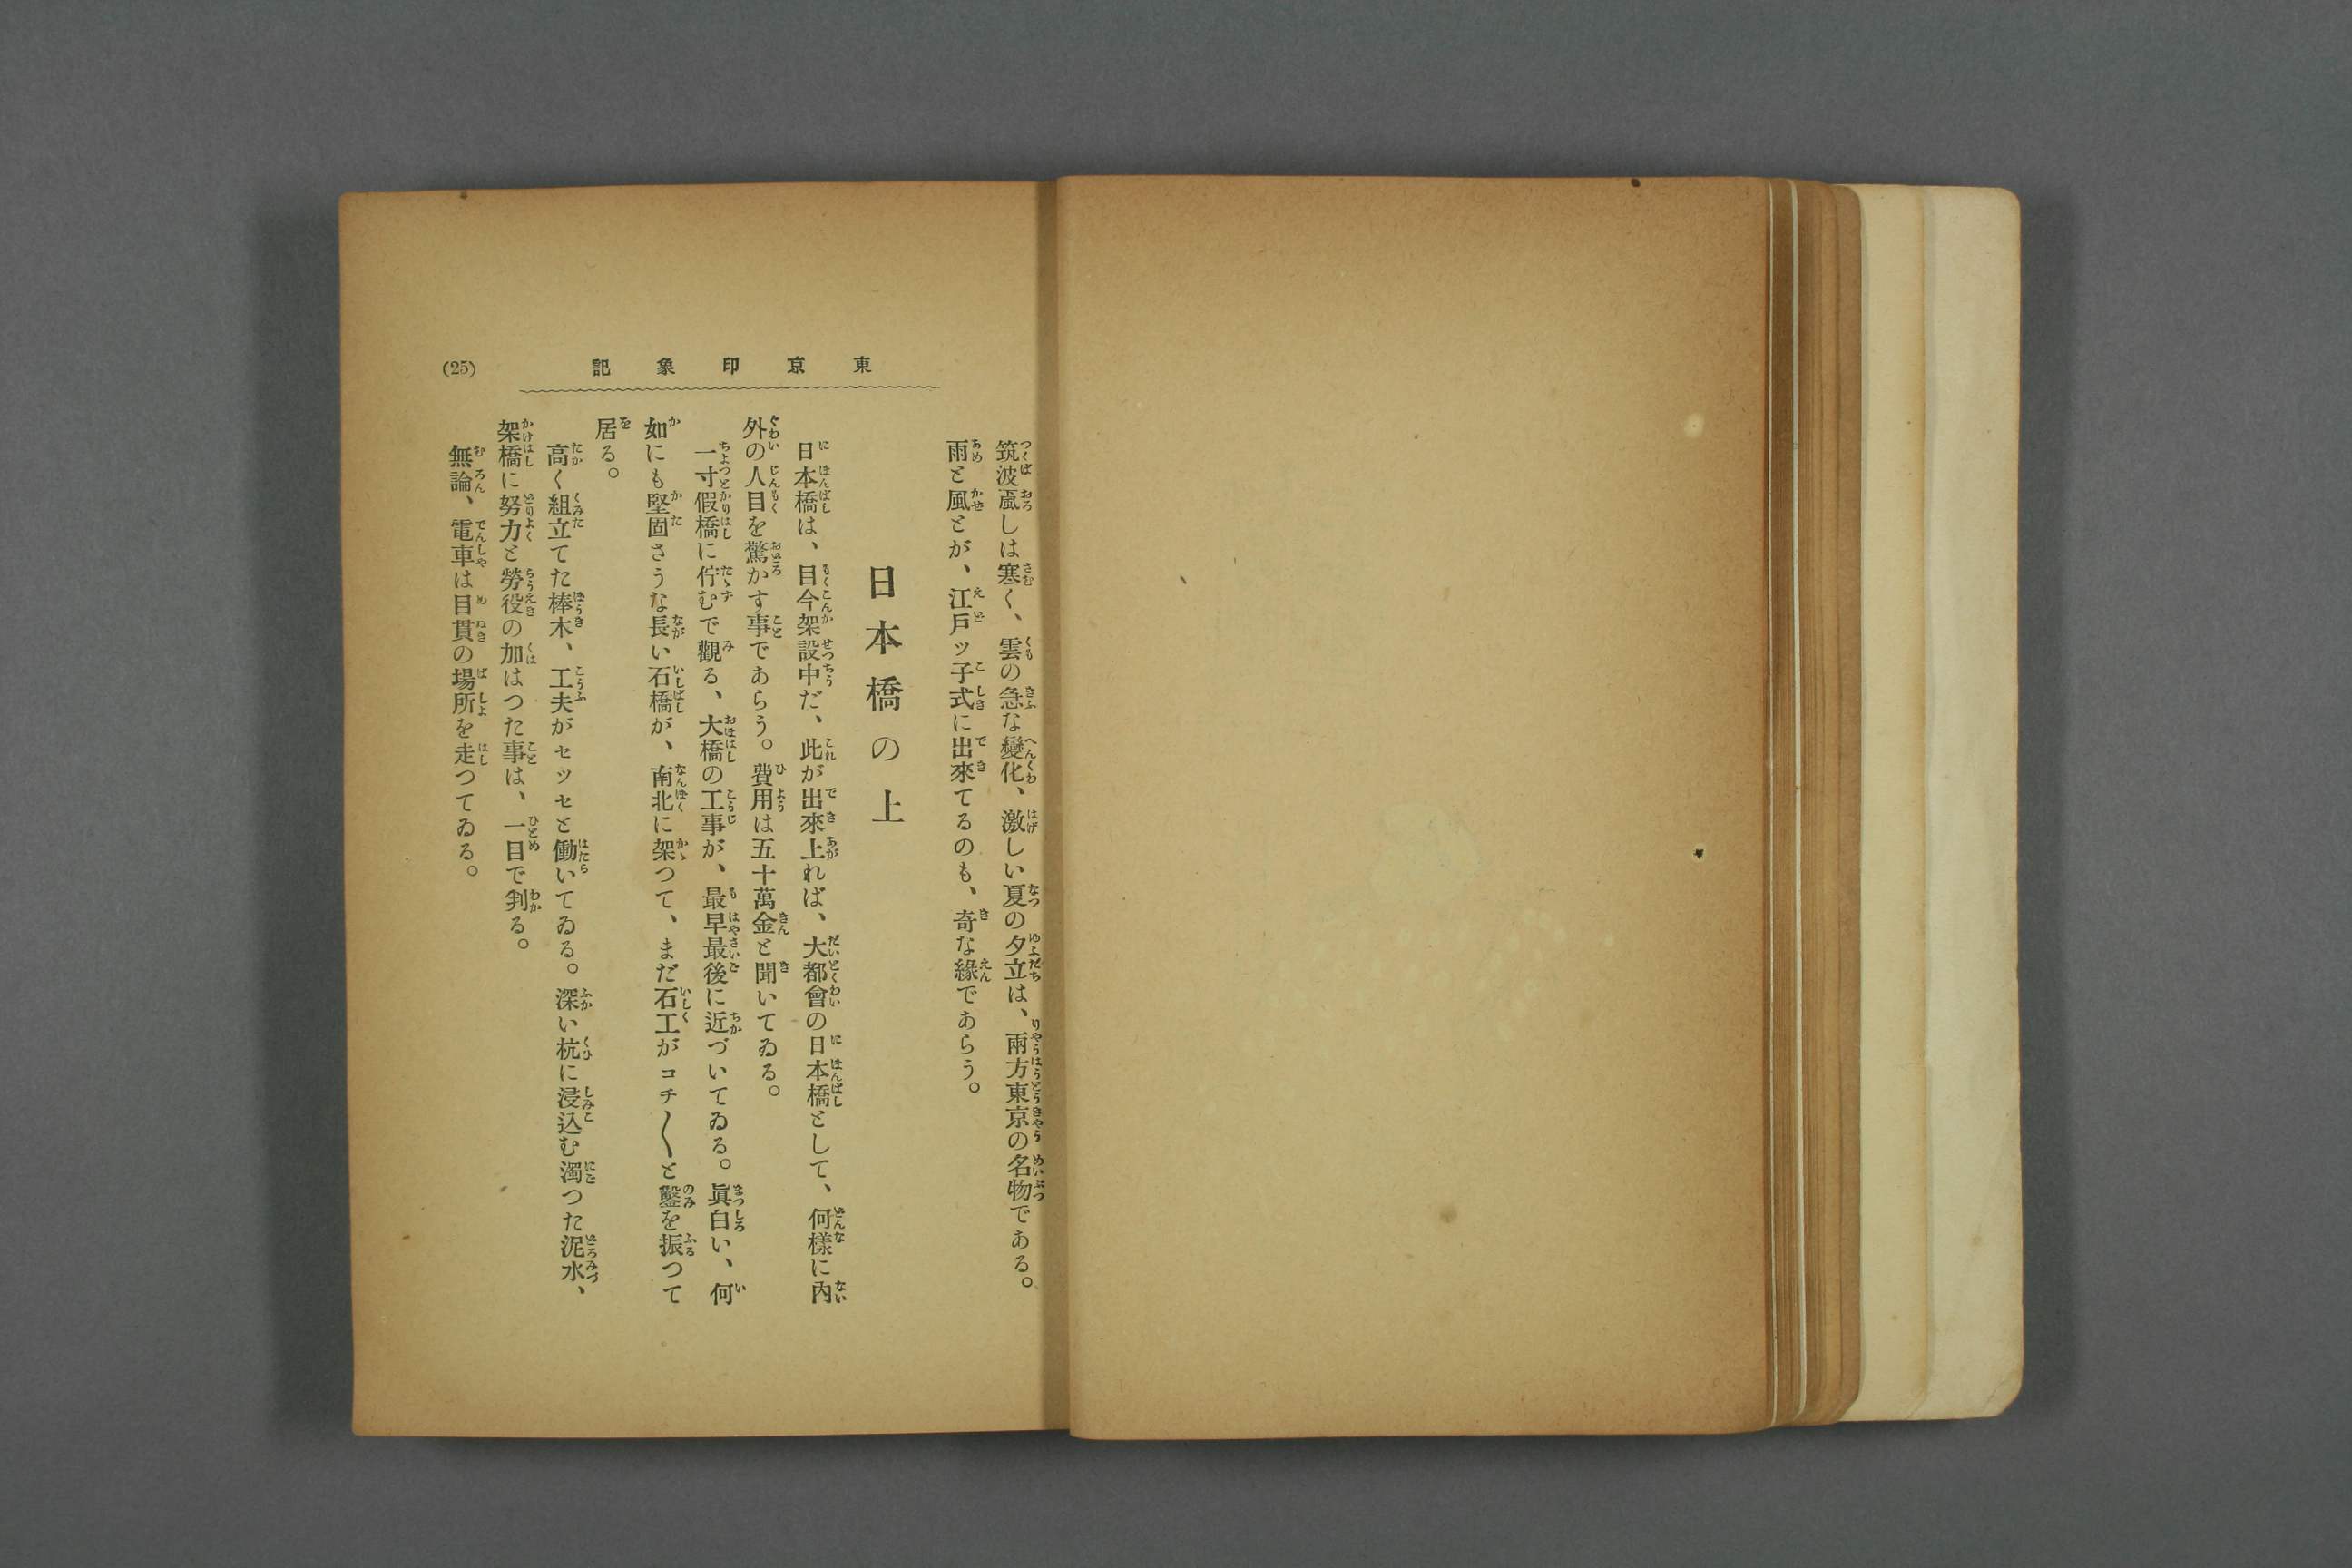 東京印象記
(25)
筑波颪しは寒く、雲の急な變化、激しい夏の夕立は、兩方東京の名物である。
雨と風とが、江戸ッ子式に出來てるのも、奇な緣であらう。
日本橋の上
日本橋は、目今架設中だ、此が出來上れば、大都會の日本橋として、何樣に內
外の人目を驚かす事であらう。費用は五十萬金と聞いてゐる。
一寸假橋に佇むで觀る、大橋の工事が、最早最後に近づいてゐる。眞白い、何
如にも堅固さうな長い石橋が、南北に架つて、まだ石工がコチ〱と鑿を振つて
居る。
高く組立てた棒木、工夫がセッセと働いてゐる。深い杭に浸込む濁つた泥水、
架橋に努力と勞役の加はつた事は、一目で判る。
無論、電車は目貫の場所を走つてゐる。